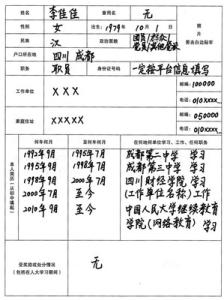 姓名 李佳佳 曾用名 无
性别 女 出生: 1979年10月1日
民族 汉 政治面貌 团员/群众/党员/其他党派
照片
户口所在地 四川 成都
职务 职员 身份证号码 一定按平台信息填写
工作单位 XXX 邮编: 100000
电话: 010XXXX
家庭住址 XXXXX 邮编: 050000
电话: 010XXXX
本人简历
何年何月 至何年何月 在何地何单位学习、工作、任何职务
1992年9月 1995年7月 成都第二中学 学习
1995年9月 1998年7月 成都第三中学 学习
1998年9月 2000年7月 四川财经学院 学习
2000年7月 至今 (工作单位名称) 工作
2010年9月 至今 中国人民大学继续教育
学院(网络教育) 学习
受奖惩或处分情况
(包括在人大学习期间)
无